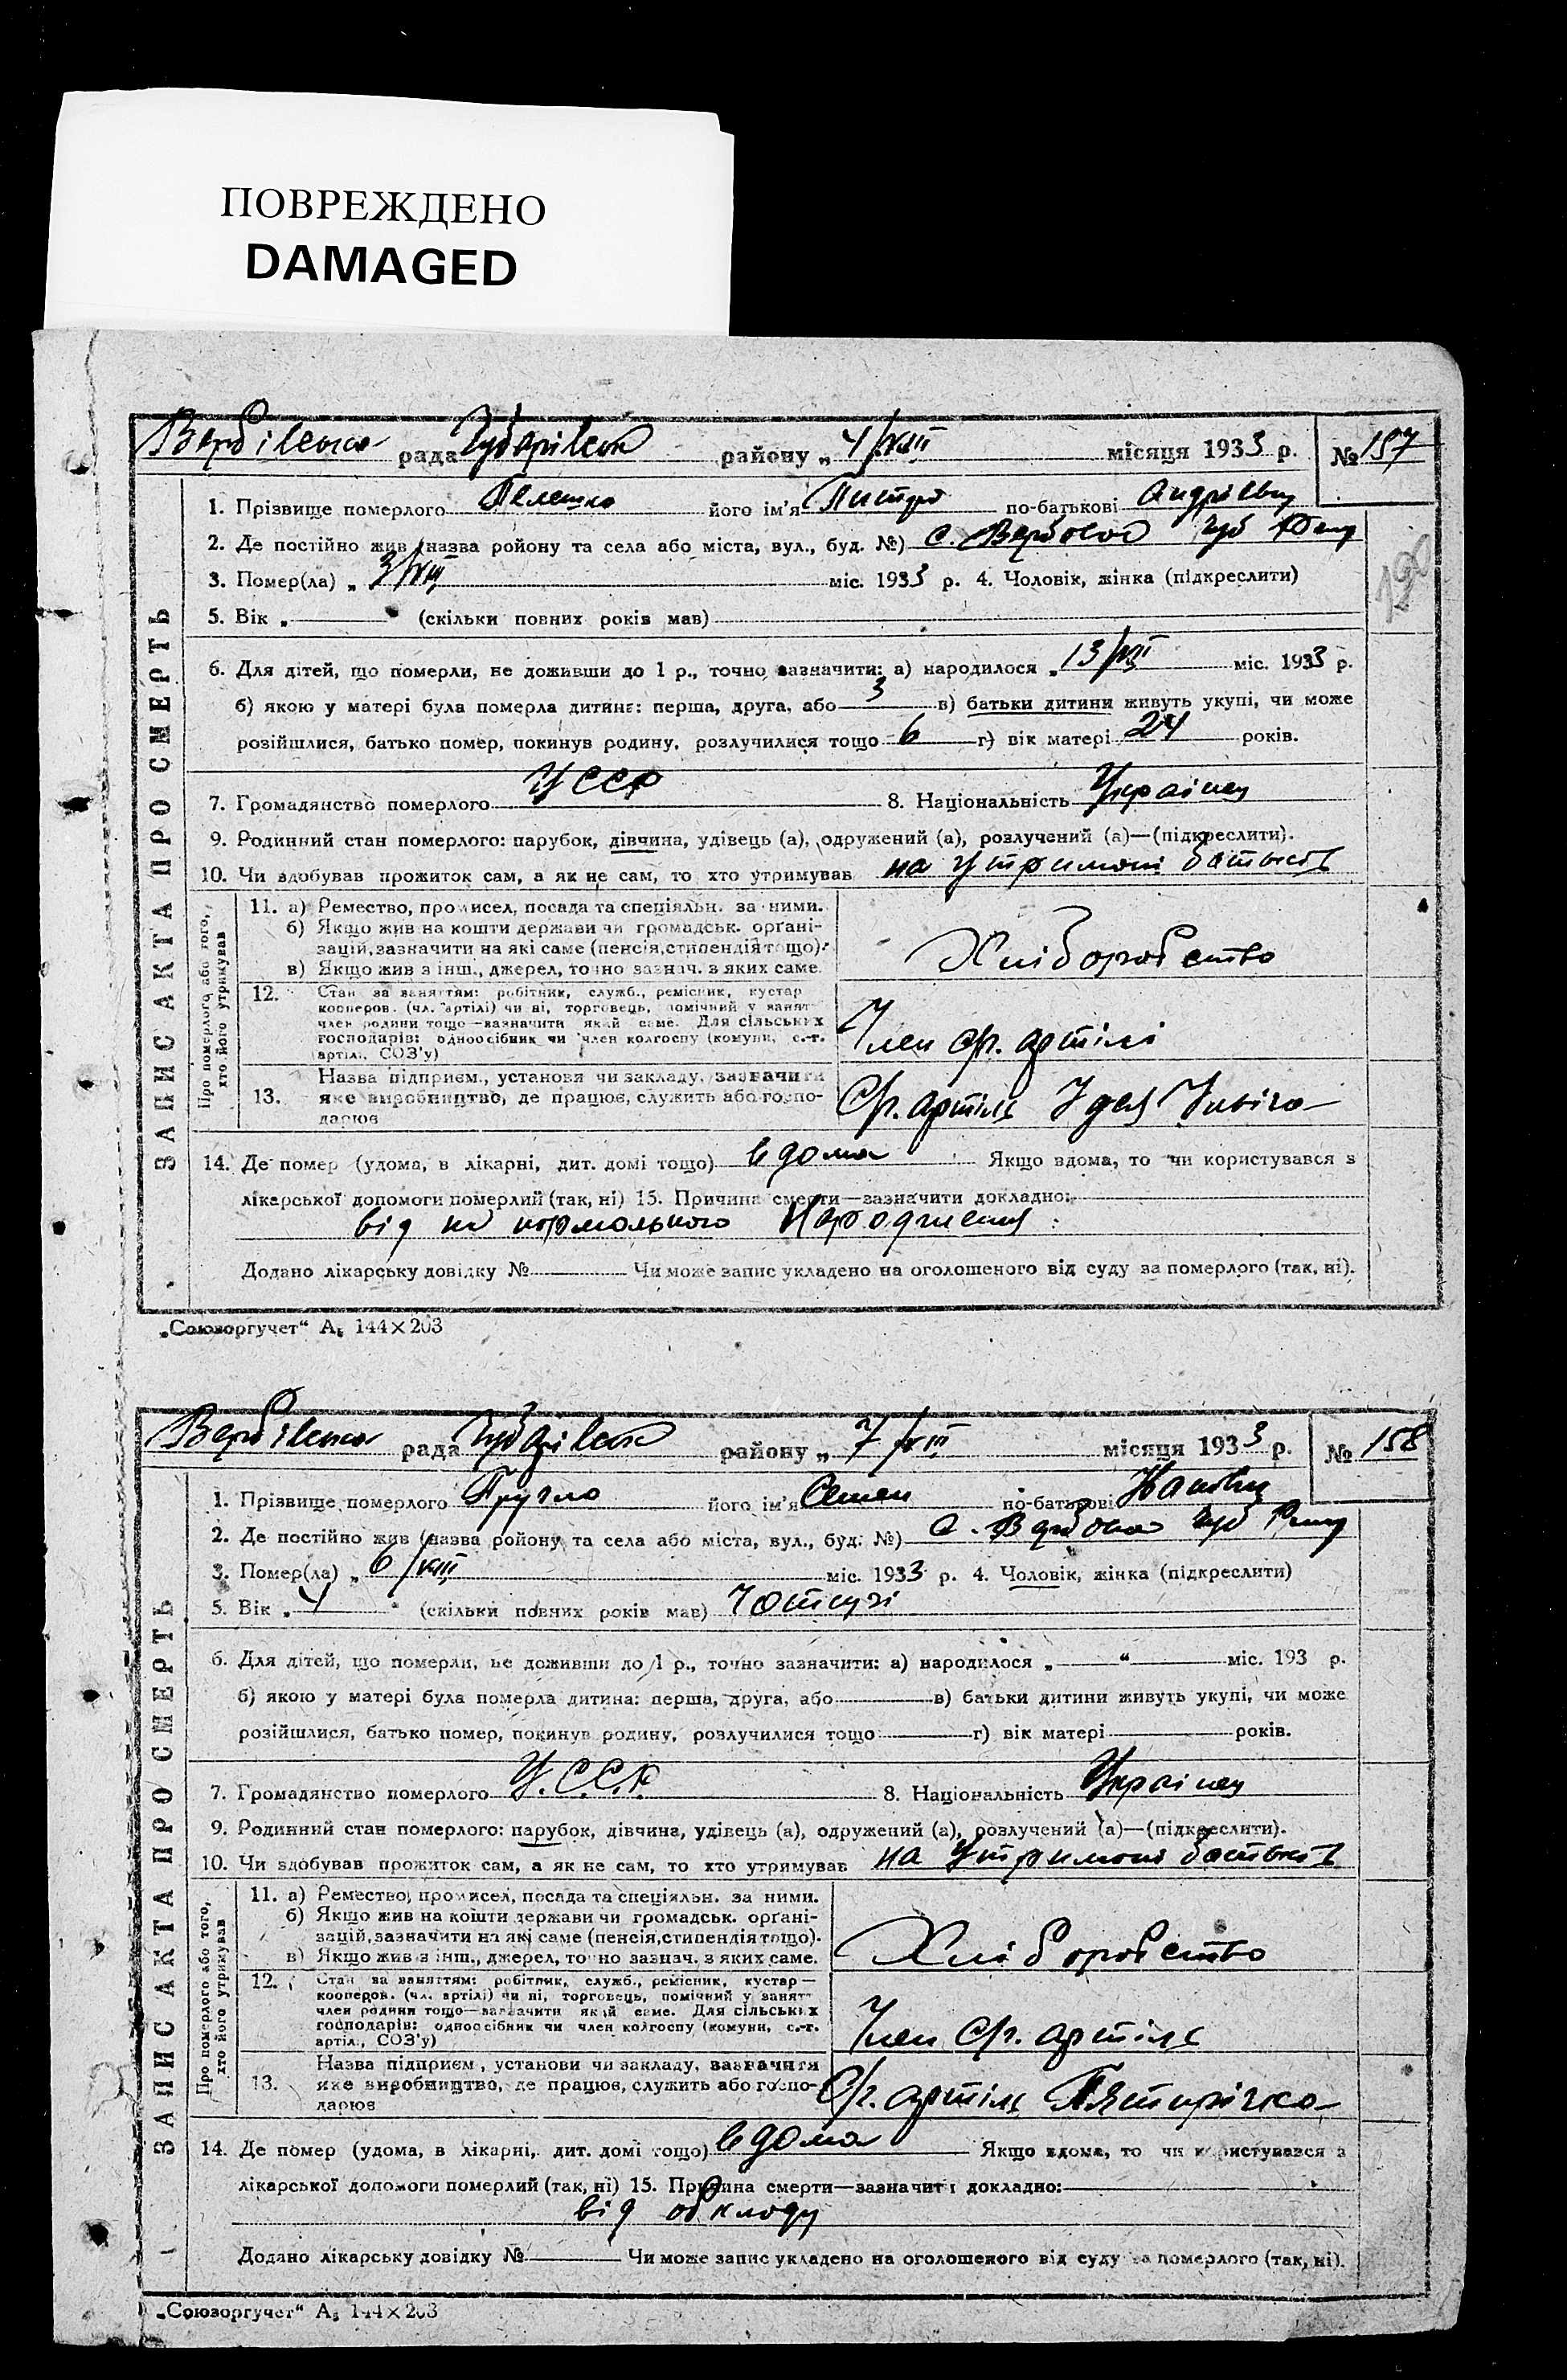 ПОВРЕЖДЕНО
DAMAGED
Вербівська рада Чубарівськ району „ 4/VIII місяця 1933 р. № 157
ЗАПИС АКТА ПРО СМЕРТЬ
1. Прізвище померлого його ім'я по-батькові
2. Де постійно жив (назва ройону та села або міста, вул., буд. №) с. Вербова Чуб
3. Помер(ла) „ 3/VIII міс. 1933 р. 4. Чоловік, жінка (підкреслити)
5. Вік „ “ (скільки повних років мав)
6. Для дітей, що померли, не доживши до 1 р., точно зазначити: а) народилося „ 13/VII міс. 1933 р.
б) якою у матері була померла дитина: перша, друга, або 3 в) батьки дитини живуть укупі, чи може
розійшлися, батько помер, покинув родину, розлучилися тощо 6 г) вік матері 24 років.
7. Громадянство померлого УССР 8. Національність Українец
9. Родинний стан померлого: парубок, дівчина, удівець (а), одружений (а), розлучений (а)—(підкреслити).
10. Чи здобував прожиток сам, а як не сам, то хто утримував на утримані батьків
Про померлого або того, хто його утримував
11. а) Ремество, промисел, посада та спеціяльн. за ними.
б) Якщо жив на кошти держави чи громадськ. орґані-
зацій, зазначити на які саме (пенсія, стипендія тощо).
в) Якщо жив з інш., джерел, точно зазнач. з яких саме.
Хліборобство
12. Стан за заняттям: робітник, служб., ремісник, кустар
кооперов. (чл. артілі) чи ні, торговець, помічний у занят
член родини тощо—зазначити який саме. Для сільських
господарів: одноосібник чи член колгоспу (комуни, с.-г.
артіл., СОЗ'у)
Член с/г. артілі
13. Назва підприєм., установи чи закладу, зазначити
яке виробництво, де працює, служить або госпо-
дарює
С/г. артіль Ідея Ілліча
14. Де помер (удома, в лікарні, дит. домі тощо) вдома Якщо вдома, то чи користувався з
лікарської допомоги померлий (так, ні) 15. Причина смерти—зазначити докладно:
від не нормального народження
Додано лікарську довідку № Чи може запис укладено на оголошеного від суду за померлого (так, ні).
„Союзоргучет“ А₅ 144×203
Вербівська рада Чубарівськ району „ 7/VIII місяця 1933 р. № 158
ЗАПИС АКТА ПРО СМЕРТЬ
1. Прізвище померлого його ім'я Семен по-батькові
2. Де постійно жив (назва ройону та села або міста, вул., буд. №) с. Вербова Чуб
3. Помер(ла) „ 6/VIII міс. 1933 р. 4. Чоловік, жінка (підкреслити)
5. Вік „ 4 “ (скільки повних років мав)
6. Для дітей, що померли, не доживши до 1 р., точно зазначити: а) народилося „ “ міс. 193 р.
б) якою у матері була померла дитина: перша, друга, або в) батьки дитини живуть укупі, чи може
розійшлися, батько помер, покинув родину, розлучилися тощо г) вік матері років.
7. Громадянство померлого У.С.С.Р. 8. Національність Українец
9. Родинний стан померлого: парубок, дівчина, удівець (а), одружений (а), розлучений (а)—(підкреслити).
10. Чи здобував прожиток сам, а як не сам, то хто утримував на утримані батьків
Про померлого або того, хто його утримував
11. а) Ремество, промисел, посада та спеціяльн. за ними.
б) Якщо жив на кошти держави чи громадськ. орґані-
зацій, зазначити на які саме (пенсія, стипендія тощо).
в) Якщо жив з інш., джерел, точно зазнач. з яких саме.
Хліборобство
12. Стан за заняттям: робітник, служб., ремісник, кустар—
кооперов. (чл. артілі) чи ні, торговець, помічний у занят
член родини тощо—зазначити який саме. Для сільських
господарів: одноосібник чи член колгоспу (комуни, с.-г.
артіл., СОЗ'у)
Член с/г. артіль
13. Назва підприєм., установи чи закладу, зазначити
яке виробництво, де працює, служить або госпо-
дарює
С/г. артіль Пятирічка
14. Де помер (удома, в лікарні, дит. домі тощо) вдома Якщо вдома, то чи користувався з
лікарської допомоги померлий (так, ні) 15. Причина смерти—зазначити докладно:
від обкладу
Додано лікарську довідку № Чи може запис укладено на оголошеного від суду за померлого (так, ні).
„Союзоргучет“ А₅ 144×203